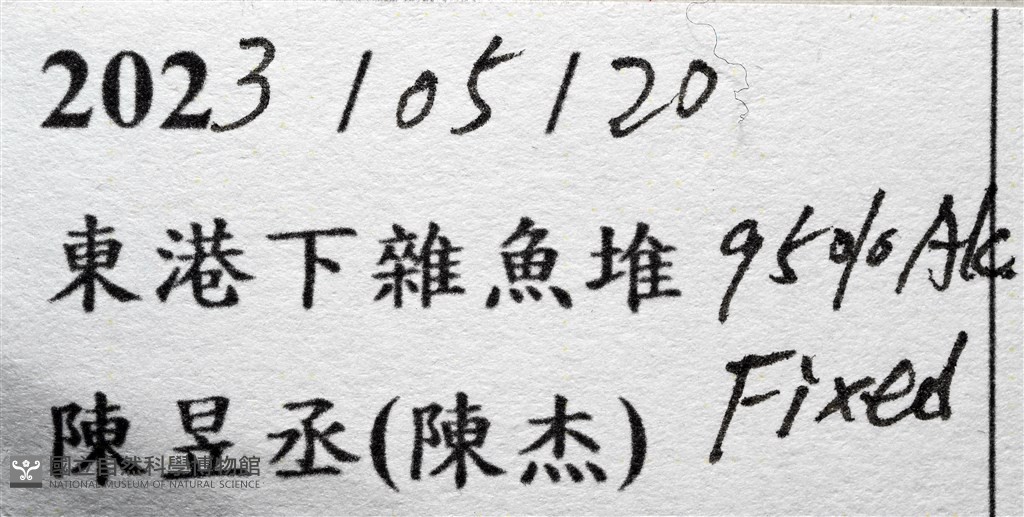 2023 / 05 / 20
東港下雜魚堆 95% Alc.
陳昱丞(陳杰) Fixed
國立自然科學博物館
NATIONAL MUSEUM OF NATURAL SCIENCE